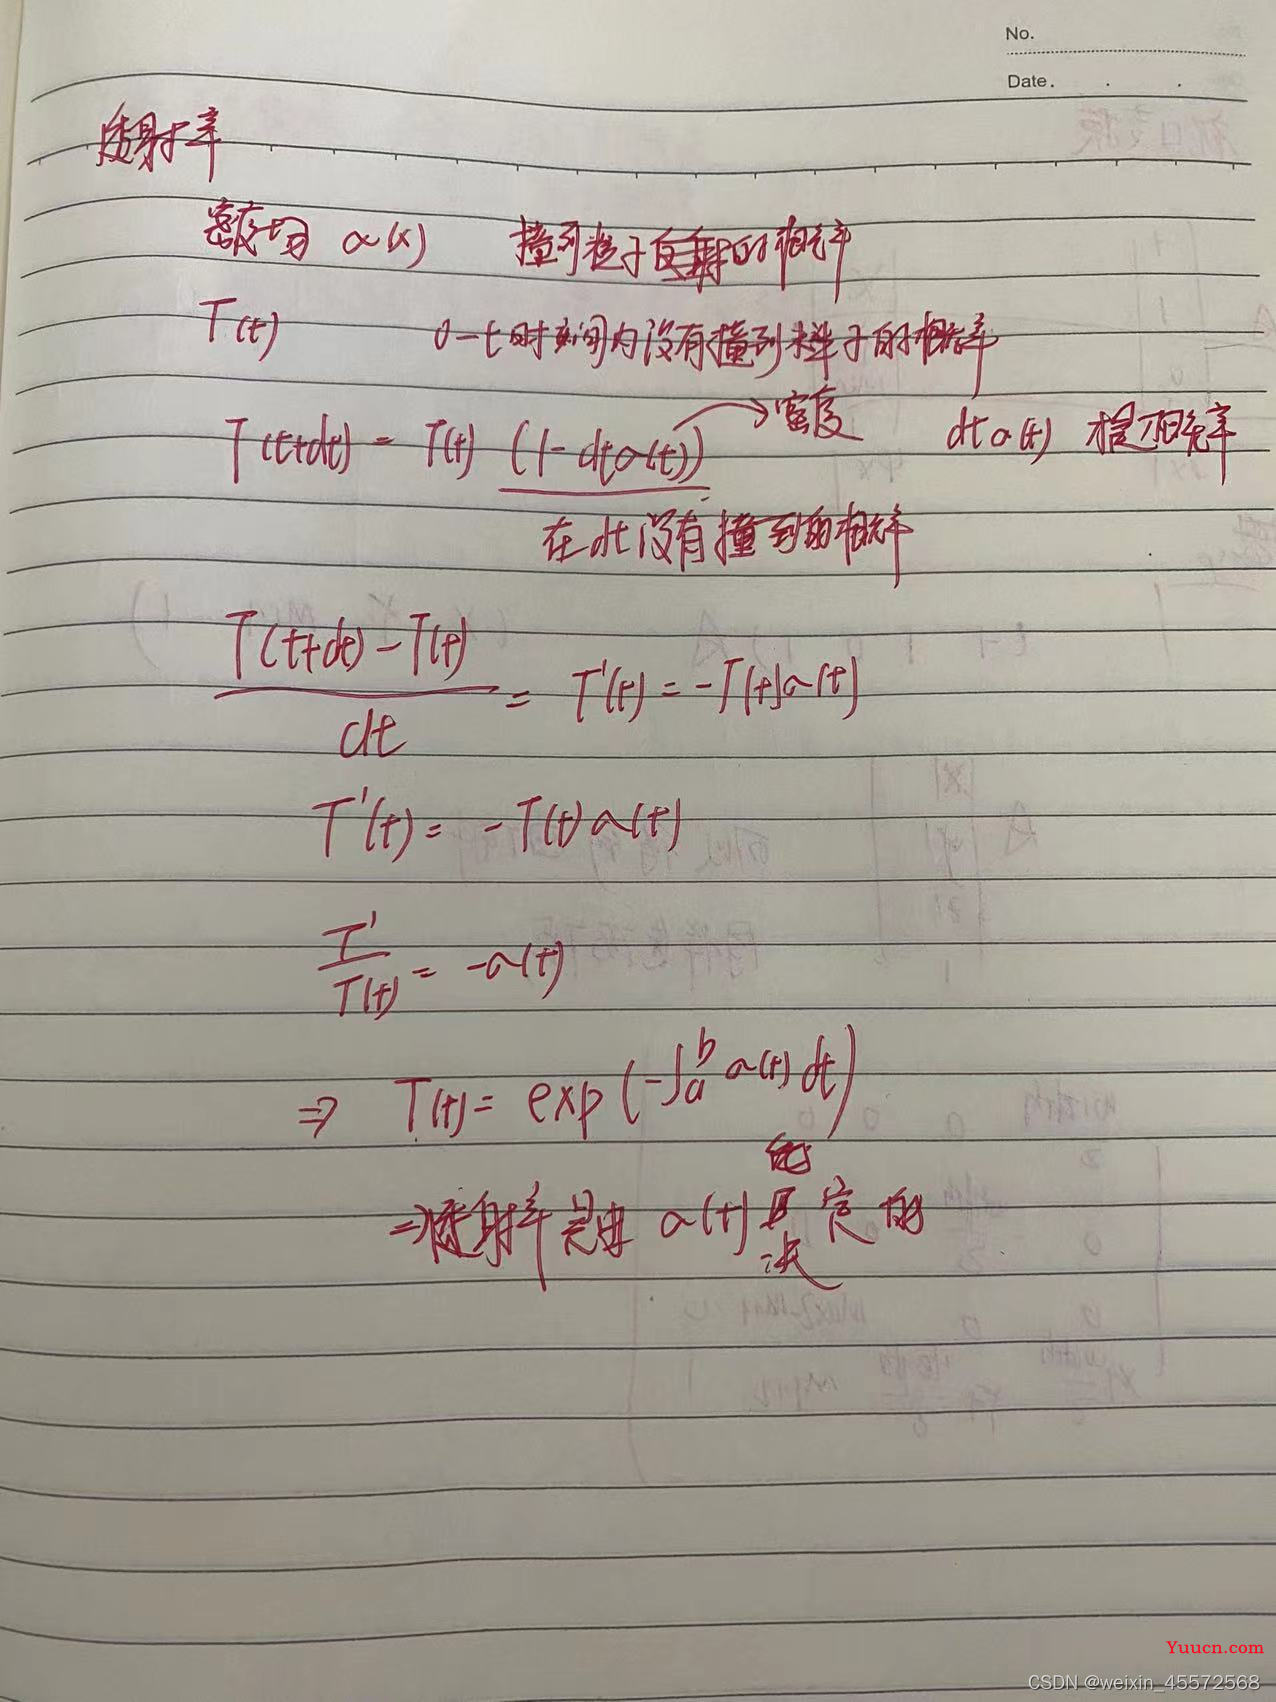 No.
Date.
透射率
密度场 σ(x) 撞到粒子反射的概率
T(t) 0-t时间内没有撞到粒子的概率
T(t+dt) = T(t) (1-dtσ(t)) → 密度 dtσ(t) 撞概率
在dt没有撞到的概率
T(t+dt)-T(t) / dt = T'(t) = -T(t)σ(t)
T'(t) = -T(t)σ(t)
T' / T(t) = -σ(t)
⇒ T(t) = exp(-∫_a^b σ(t) dt)
⇒透射率是由 σ(t) 决定的
Yuucn.com
CSDN @weixin_45572568